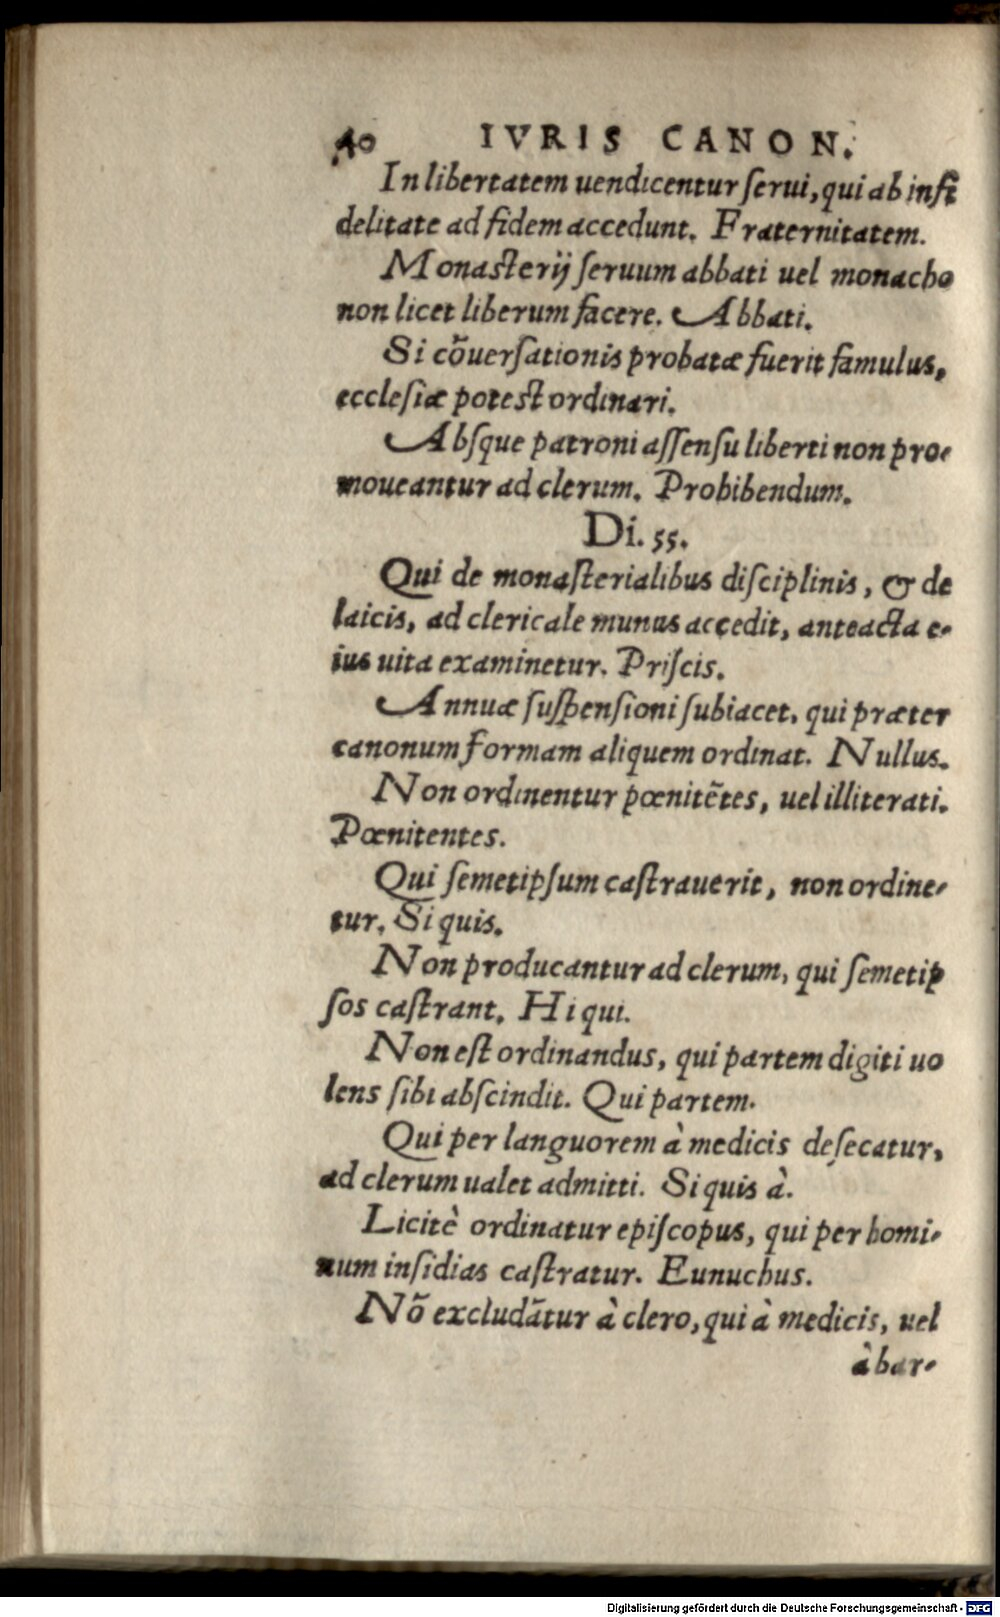 40 IVRIS CANON.
In libertatem uendicentur ſerui, qui ab infi
delitate ad fidem accedunt. Fraternitatem.
Monaſterij ſeruum abbati uel monacho
non licet liberum facere. Abbati.
Si cōuerſationis probatæ fuerit famulus,
eccleſiæ poteſt ordinari.
Abſque patroni aſſenſu liberti non pro-
moueantur ad clerum. Prohibendum.
Di. 55.
Qui de monaſterialibus diſciplinis, & de
laicis, ad clericale munus accedit, anteacta e-
ius uita examinetur. Priſcis.
Annuæ ſuſpenſioni ſubiacet, qui præter
canonum formam aliquem ordinat. Nullus.
Non ordinentur pœnitētes, uel illiterati.
Pœnitentes.
Qui ſemetipſum caſtrauerit, non ordine-
tur. Si quis.
Non producantur ad clerum, qui ſemetip
ſos caſtrant. Hi qui.
Non eſt ordinandus, qui partem digiti uo
lens ſibi abſcindit. Qui partem.
Qui per languorem à medicis deſecatur,
ad clerum ualet admitti. Si quis à.
Licitè ordinatur epiſcopus, qui per homi-
num inſidias caſtratur. Eunuchus.
Nō excludātur à clero, qui à medicis, uel
à bar-
Digitalisierung gefördert durch die Deutsche Forschungsgemeinschaft - DFG